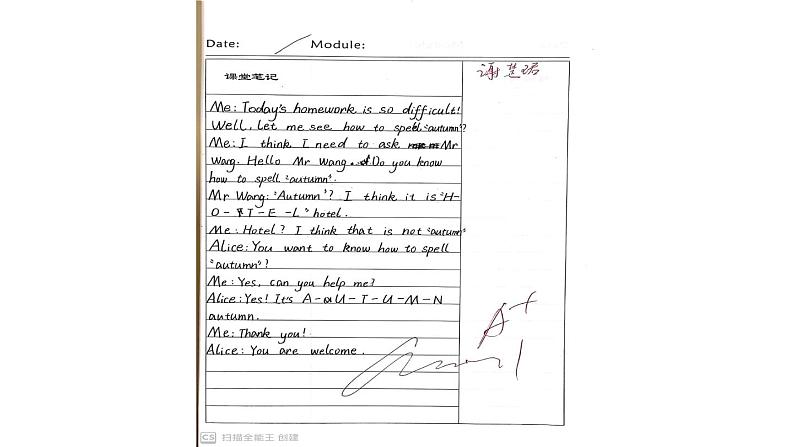 Date: Module:
课堂笔记
谢楚珺
Me: Today's homework is so difficult!
Well, let me see how to spell "autumn"?
Me: I think I need to ask Mr
Wang. Hello Mr Wang. Do you know
how to spell "autumn".
Mr Wang: "Autumn"? I think it is "H-
O-T-E-L" hotel.
Me: Hotel? I think that is not "autumn"
Alice: You want to know how to spell
"autumn"?
Me: Yes, can you help me?
Alice: Yes! It's A-U-T-U-M-N
autumn.
Me: Thank you!
Alice: You are welcome.
A+
CS 扫描全能王 创建